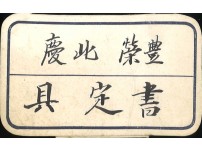 豊榮此慶
書定具